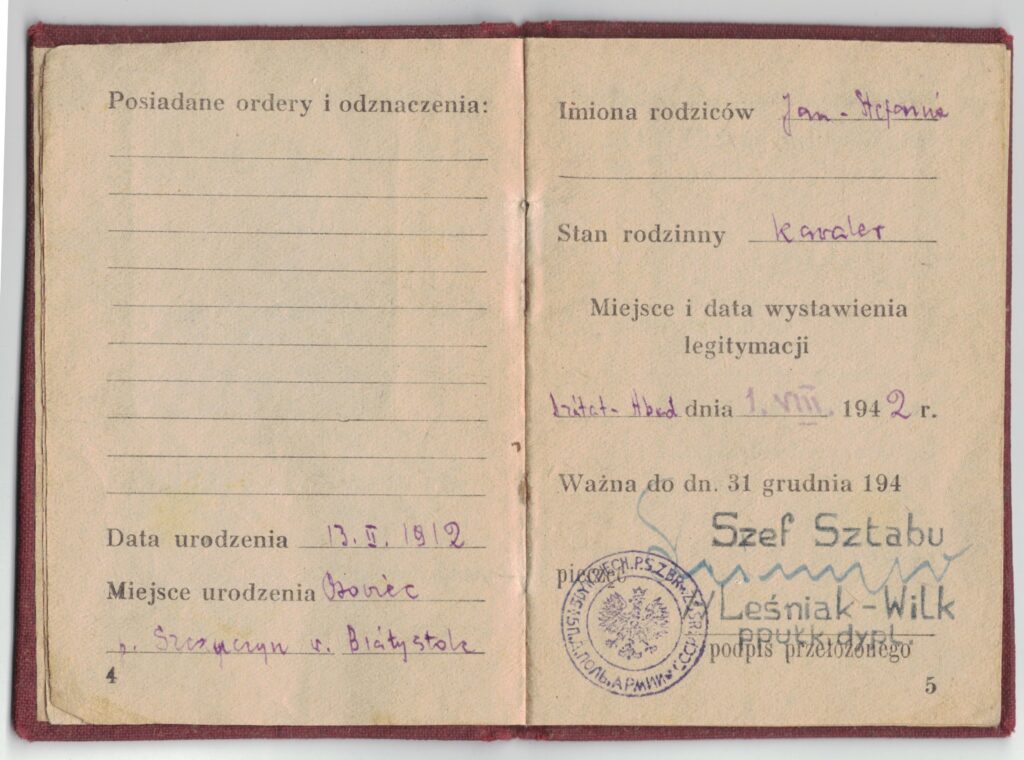 Posiadane ordery i odznaczenia:
Data urodzenia 13. II. 1912
Miejsce urodzenia
p. Szczuczyn w. Białystok
4
Imiona rodziców Jan - Stefania
Stan rodzinny kawaler
Miejsce i data wystawienia
legitymacji
dnia 1. VIII. 1942 r.
Ważna do dn. 31 grudnia 194
Szef Sztabu
pieczęć
/Leśniak-Wilk
ppułk. dypl.
podpis przełożonego
5